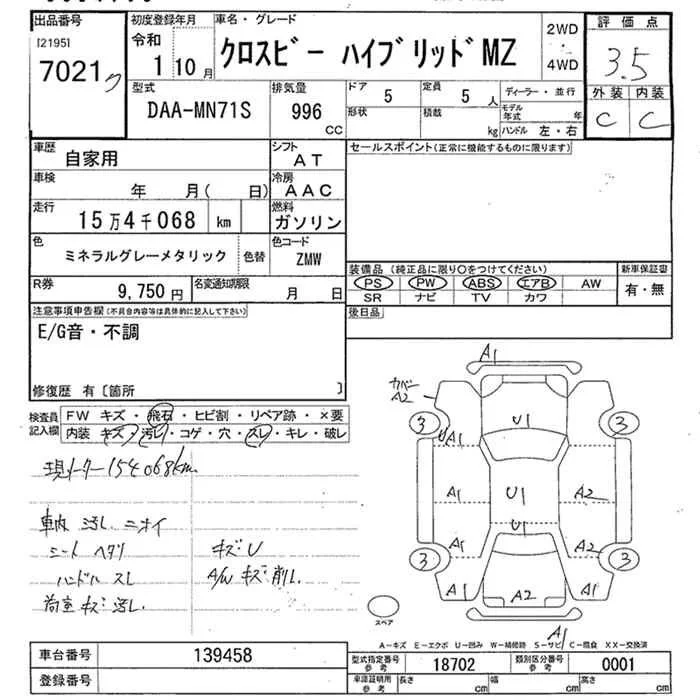 出品番号 初度登録年月 車名・グレード 2WD ・ 4WD 評価点
[2195] 7021 ク 令和 1年 10月 クロスビー ハイブリッドMZ 3.5
外装 内装
C C
型式 排気量 ドア 定員 ディーラー・並行
DAA-MN71S 996 CC 5 5 人
形状 積載 kg モデル年式 年
ハンドル 左・右
車歴 自家用 シフト AT セールスポイント(正常に機能するものに限ります)
車検 年 月( 日) 冷房 AAC
走行 15万4千068 km 燃料 ガソリン
色 ミネラルグレーメタリック 色替 色コード ZMW
装備品 (純正品に限り○をつけてください) 新車保証書
PS PW ABS エアB AW 有・無
SR ナビ TV カワ
R券 9,750円 名変通知期限 月 日
後日品
注意事項申告欄(不具合内容等は具体的に記入して下さい)
E/G音・不調
修復歴 有〔箇所 〕
検査員記入欄 FW キズ・飛石・ヒビ割・リペア跡・×要
内装 キズ・汚レ・コゲ・穴・スレ・キレ・破レ
現メーター154068km
車内 汚レ ニオイ
シート ヘタリ キズU
ハンドル スレ A/W キズ 削レ
荷室 キズ 汚レ
A1
カバー A2
3 3
U1
UA1
A1 U1 A2
U1
A1 A2
3 3
A1 A2 A1
A1
スペア
A-キズ E-エクボ U-凹み W-補修跡 S-サビ C-腐食 XX-交換済
車台番号 139458 型式指定番号 参考 18702 類別区分番号 参考 0001
登録番号 車庫証明用 参考 長さ cm 幅 cm 高さ cm